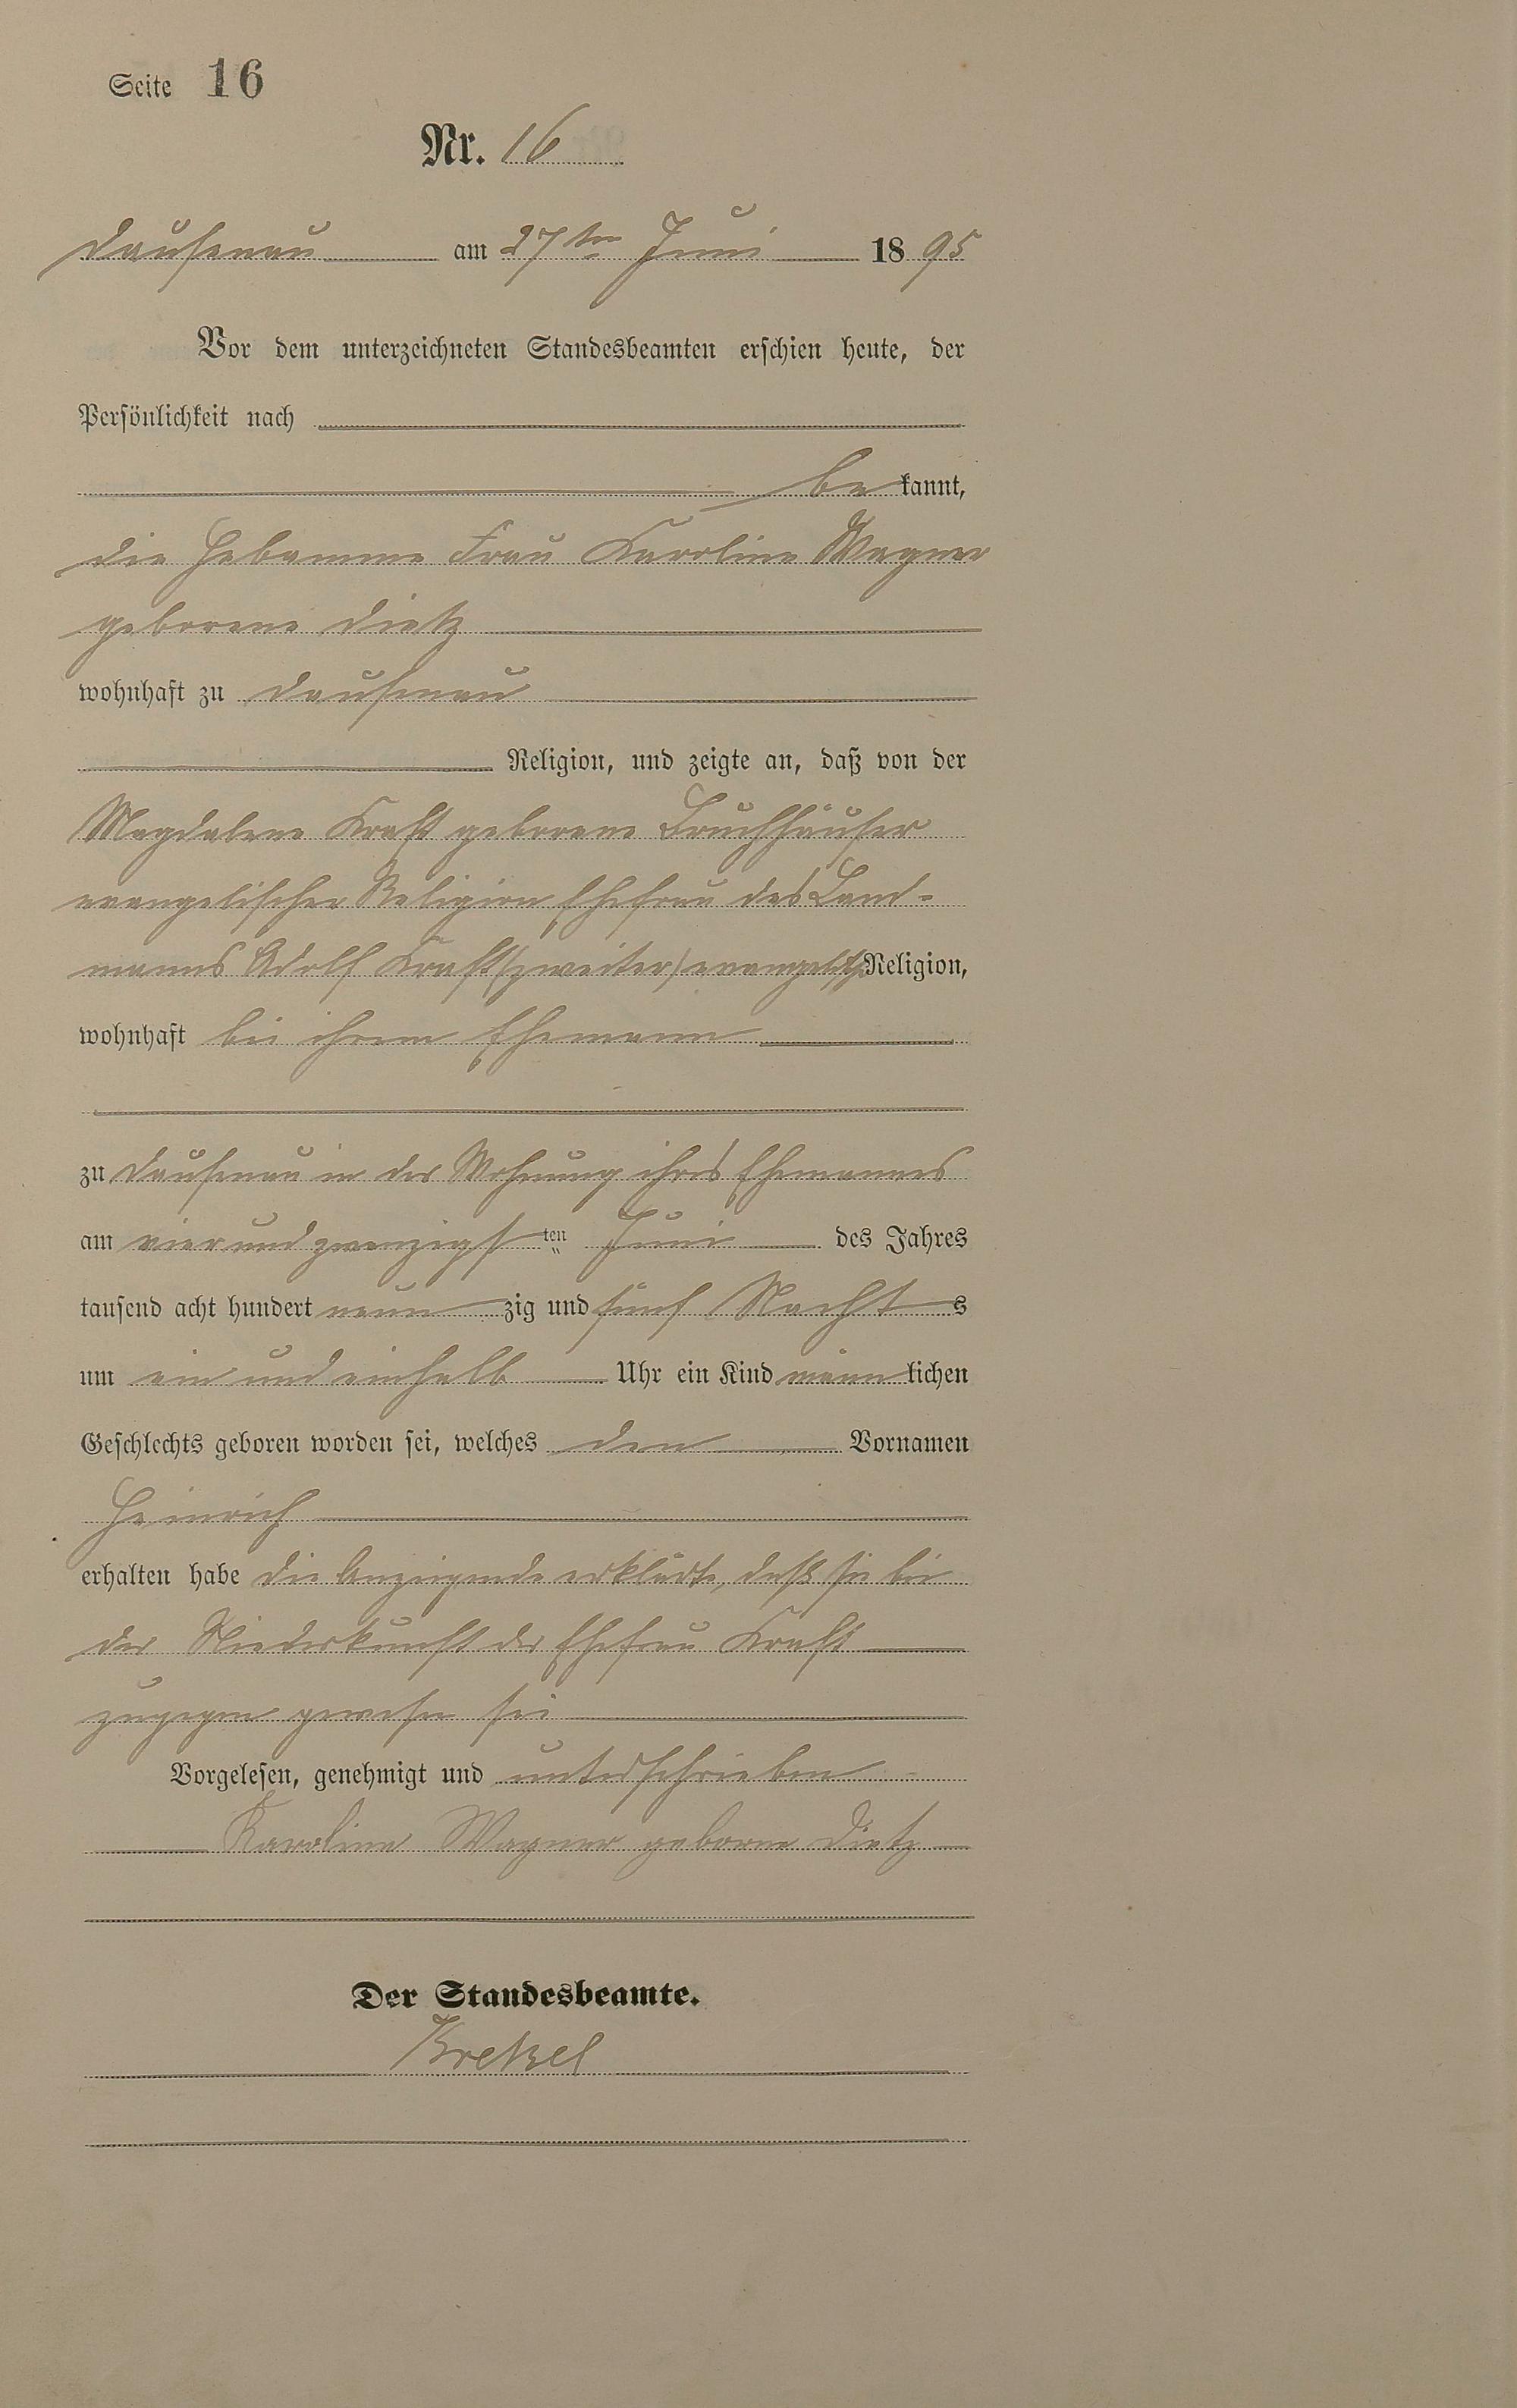 Seite 16
Nr. 16
Dausenau am 27ten Juni 1895
Vor dem unterzeichneten Standesbeamten erschien heute, der
Persönlichkeit nach
bekannt,
die Hebamme Frau Karoline Wagner
geborene Dietz
wohnhaft zu Dausenau
Religion, und zeigte an, daß von der
Magdalene Kraft geborene Bruchhäuser
evangelischer Religion Ehefrau des Land-
manns Adolf Kraft (zweiter) evangelisch Religion,
wohnhaft bei ihrem Ehemann
zu Dausenau in der Wohnung ihres Ehemannes
am vier und zwanzigsten Juni des Jahres
tausend acht hundert neunzig und fünf Nachts
um ein und einhalb Uhr ein Kind männlichen
Geschlechts geboren worden sei, welches den Vornamen
Heinrich
erhalten habe die Anzeigende erklärte, daß sie bei
der Niederkunft der Ehefrau Kraft
zugegen gewesen sei
Vorgelesen, genehmigt und unterschrieben
Karoline Wagner geborne Dietz
Der Standesbeamte.